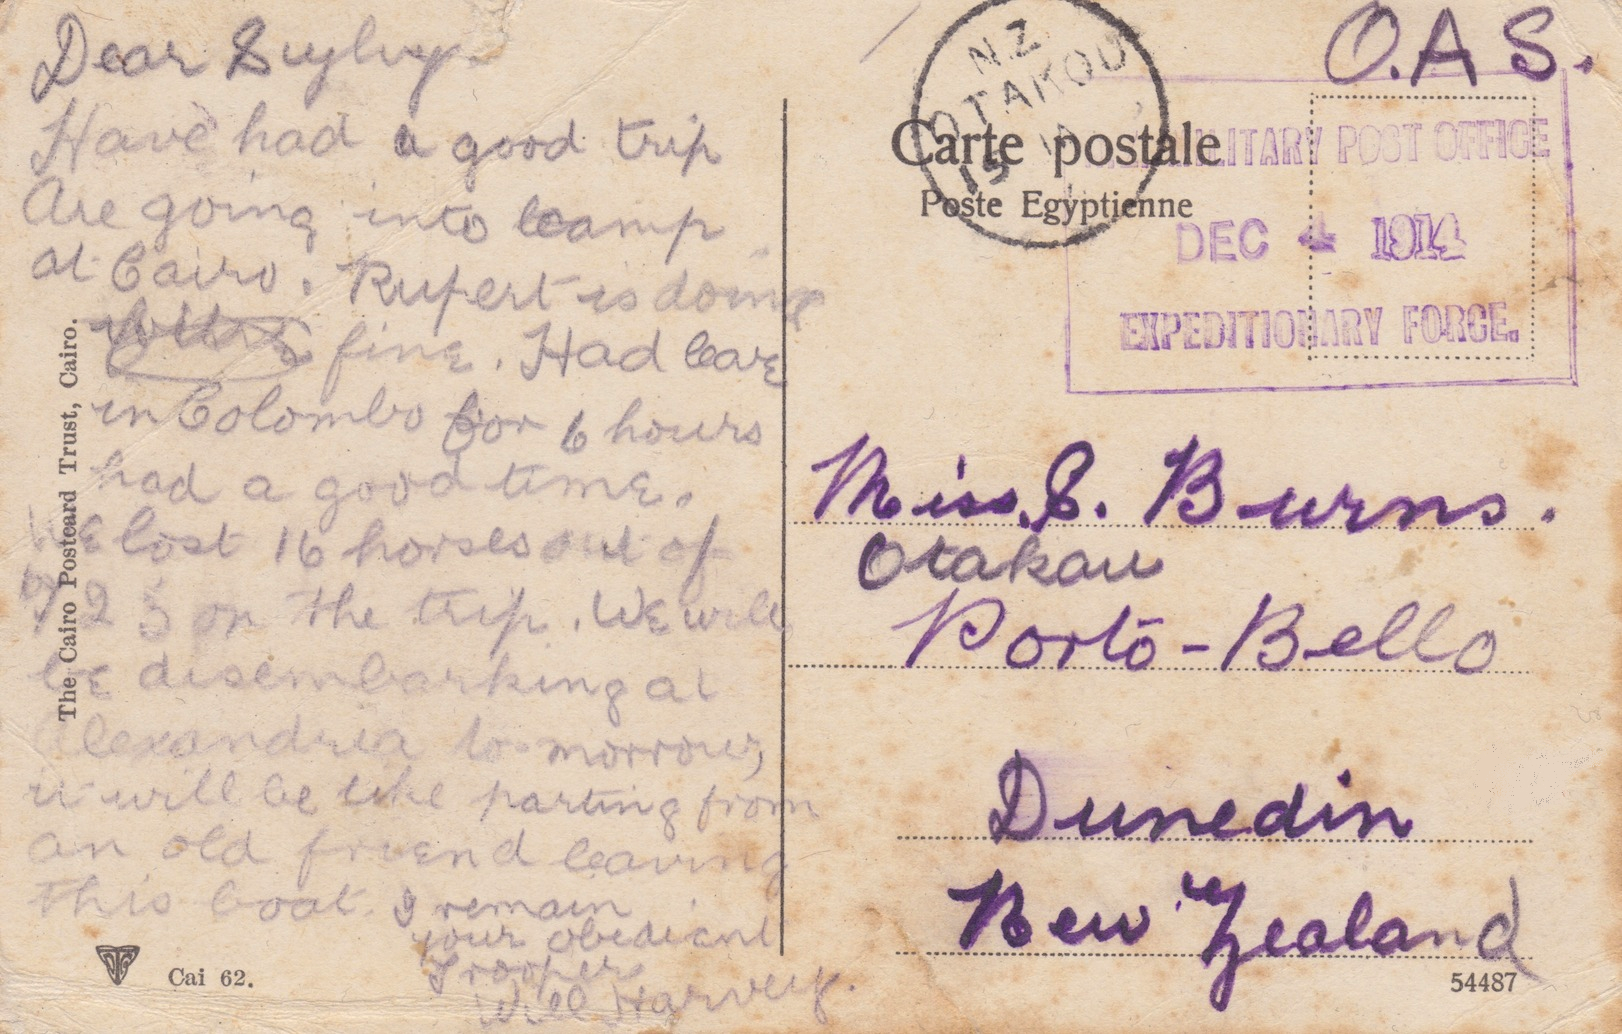 Dear Suylvy.
Have had a good trip
Are going into camp
at Cairo. Rupert is doing
fine. Had leave
in Colombo for 6 hours
had a good time.
We lost 16 horses out of
725 on the trip. We will
be disembarking at
Alexandria to-morrow,
it will be like parting from
an old friend leaving
this boat. I remain
your obedient
Trooper
Will Harvey.
The Cairo Postcard Trust, Cairo.
Cai 62.
O.A.S.
N.Z
OTAKOU
15
Carte postale
Poste Egyptienne
MILITARY POST OFFICE
DEC 4 1914
EXPEDITIONARY FORCE.
Miss. S. Burns.
Otakau
Porto-Bello
Dunedin
New Zealand
54487